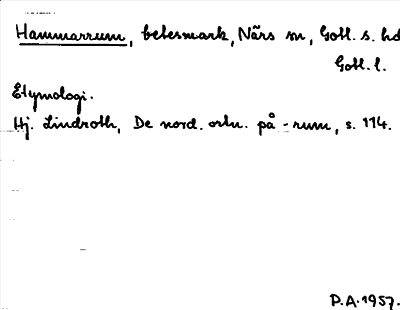 Hammarrum, betesmark, Närs sn, Gotl. s. hd
Gotl. l.
Etymologi.
Hj. Lindroth, De nord. ortn. på -rum, s. 114.
P.A. 1957.